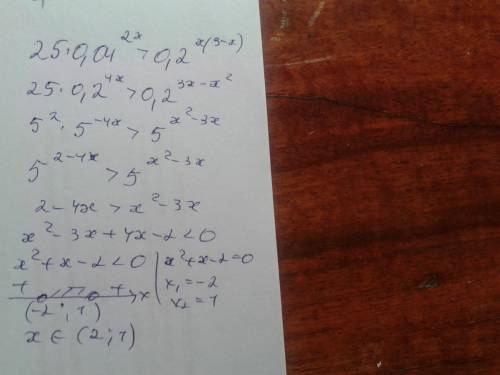 25·0,04^2x > 0,2^x(3-x)
25·0,2^4x > 0,2^3x-x²
5²·5^-4x > 5^x²-3x
5^2-4x > 5^x²-3x
2-4x > x²-3x
x²-3x+4x-2<0
x²+x-2<0 | x²+x-2=0
x₁=-2
+ - + x x₂=1
(-2; 1)
x ∈ (2; 1)